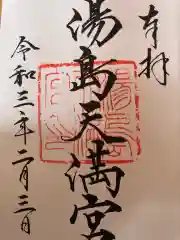 奉拝
湯島天満宮
令和三年二月三日